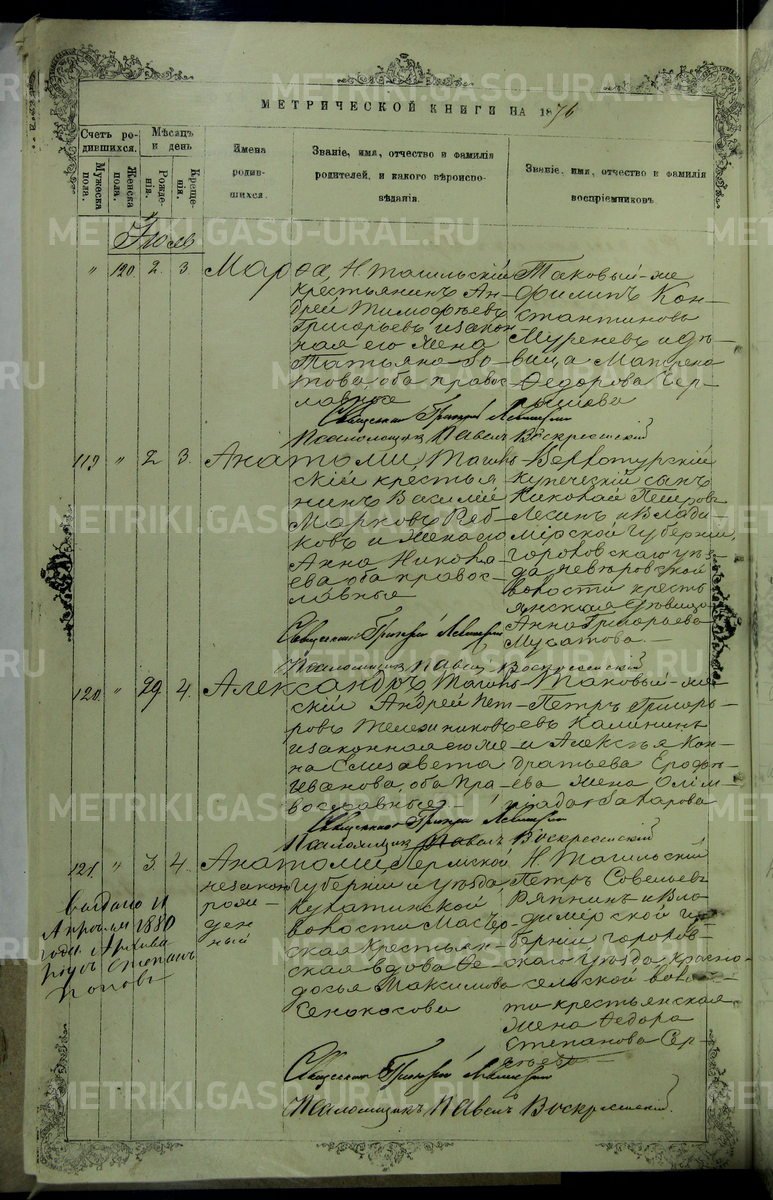 МЕТРИЧЕСКОЙ КНИГИ НА 1876
Счетъ родившихся.
Мужеска пола.
Женска пола.
Мѣсяцъ и день
Рожденія.
Крещенія.
Имена родившихся.
Званіе, имя, отчество и фамилія родителей, и какого вѣроисповѣданія.
Званіе, имя, отчество и фамилія воспріемниковъ.
Іюль
" 120 2. 3. Марѳа,
Н. Тагильскій
крестьянинъ Ан-
дрей Тимофѣевъ
Григорьевъ и закон
ная его жена
Татьяна
оба правос-
лавные
Таковый-же
Филипъ Кон-
стантиновъ
и дѣ-
вица Матрена
Федорова Чер-
нышева
Священникъ Григорій Левитскій
Псаломщикъ Павелъ Воскресенскій
119 " 2 3. Анатоли,
Тагиль-
скій крестья-
нинъ Василій
Марковъ Ряб-
ковъ и жена его
Анна Никола-
ева оба правос-
лавные
Верхотурскій
купеческій сынъ
Николай Петровъ
и Влади-
мірской губерніи,
Гороховскаго уѣз-
да
волости кресть
янская дѣвица
Анна Григорьева
Муратова.
Священникъ Григорій Левитскій
Псаломщикъ Павелъ Воскресенскій
120. " 29 4. Александръ
Тагиль-
скій Андрей Пет-
ровъ Железниковъ
и законная его же-
на Елизавета
Иванова, оба пра-
вославные
Таковый-же
Петръ Григорь-
евъ Калининъ
и Кон-
дратьева Ерофѣ-
ева жена
Священникъ Григорій Левитскій
Псаломщикъ Павелъ Воскресенскій
121. " 3. 4. Анатоли
незакон
рож-
ден
ный
Пермской
губерніи и уѣзда,
волости
ская крестьян-
ская вдова Ѳе-
досья Максимова
Сенокосова
Н. Тагильскій
Петръ Савельевъ
Ряпнинъ и Вла-
димірской гу-
берніи, Горохов-
скаго уѣзда, Красно-
сельской воло-
сти крестьянская
жена Федора
Степанова Сер-
гѣева
Выдано 11
Апрѣля 1880
года
Степанъ
Поповъ
Священникъ Григорій Левитскій
Псаломщикъ Павелъ Воскресенскій
METRIKI.GASO-URAL.RU